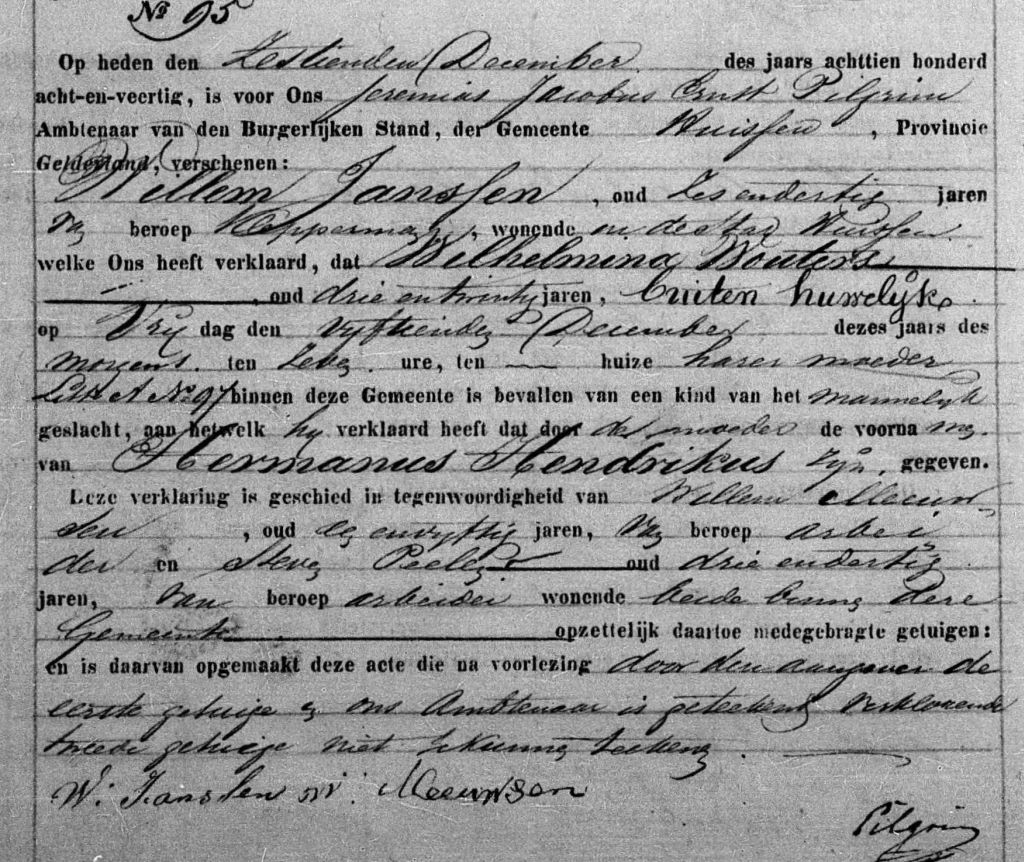 No 95
Op heden den Zestienden December des jaars achttien honderd
acht-en-veertig, is voor Ons Jeremias Jacobus Ernst Pilgrim
Ambtenaar van den Burgerlijken Stand, der Gemeente Huissen, Provincie
Gelderland, verschenen:
Willem Janssen, oud Zes en dertig jaren
van beroep Kopperman, wonende in de stad Huissen
welke Ons heeft verklaard, dat Wilhelmina Wouters
, oud drie en twintig jaren, buiten huwelijk
op Vrij dag den vyftienden December dezes jaars des
morgens ten Zeven ure, ten huize harer moeder
Lett A No 97 binnen deze Gemeente is bevallen van een kind van het mannelyk
geslacht, aan hetwelk hy verklaard heeft dat door de moeder de voorna men
van Hermanus Hendrikus zyn gegeven.
Deze verklaring is geschied in tegenwoordigheid van Willem Meeuw-
sen, oud een en vyftig jaren, van beroep arbei
der en Steven Peelen oud drie en dertig
jaren, van beroep arbeider wonende beide binnen deze
Gemeente opzettelijk daartoe medegebragte getuigen:
en is daarvan opgemaakt deze acte die na voorlezing door den aangever de
eerste getuige en ons Ambtenaar is geteekend verklarende
tweede getuige niet te kunnen teekenen.
W: Janssen W: Meeuwsen
Pilgrim